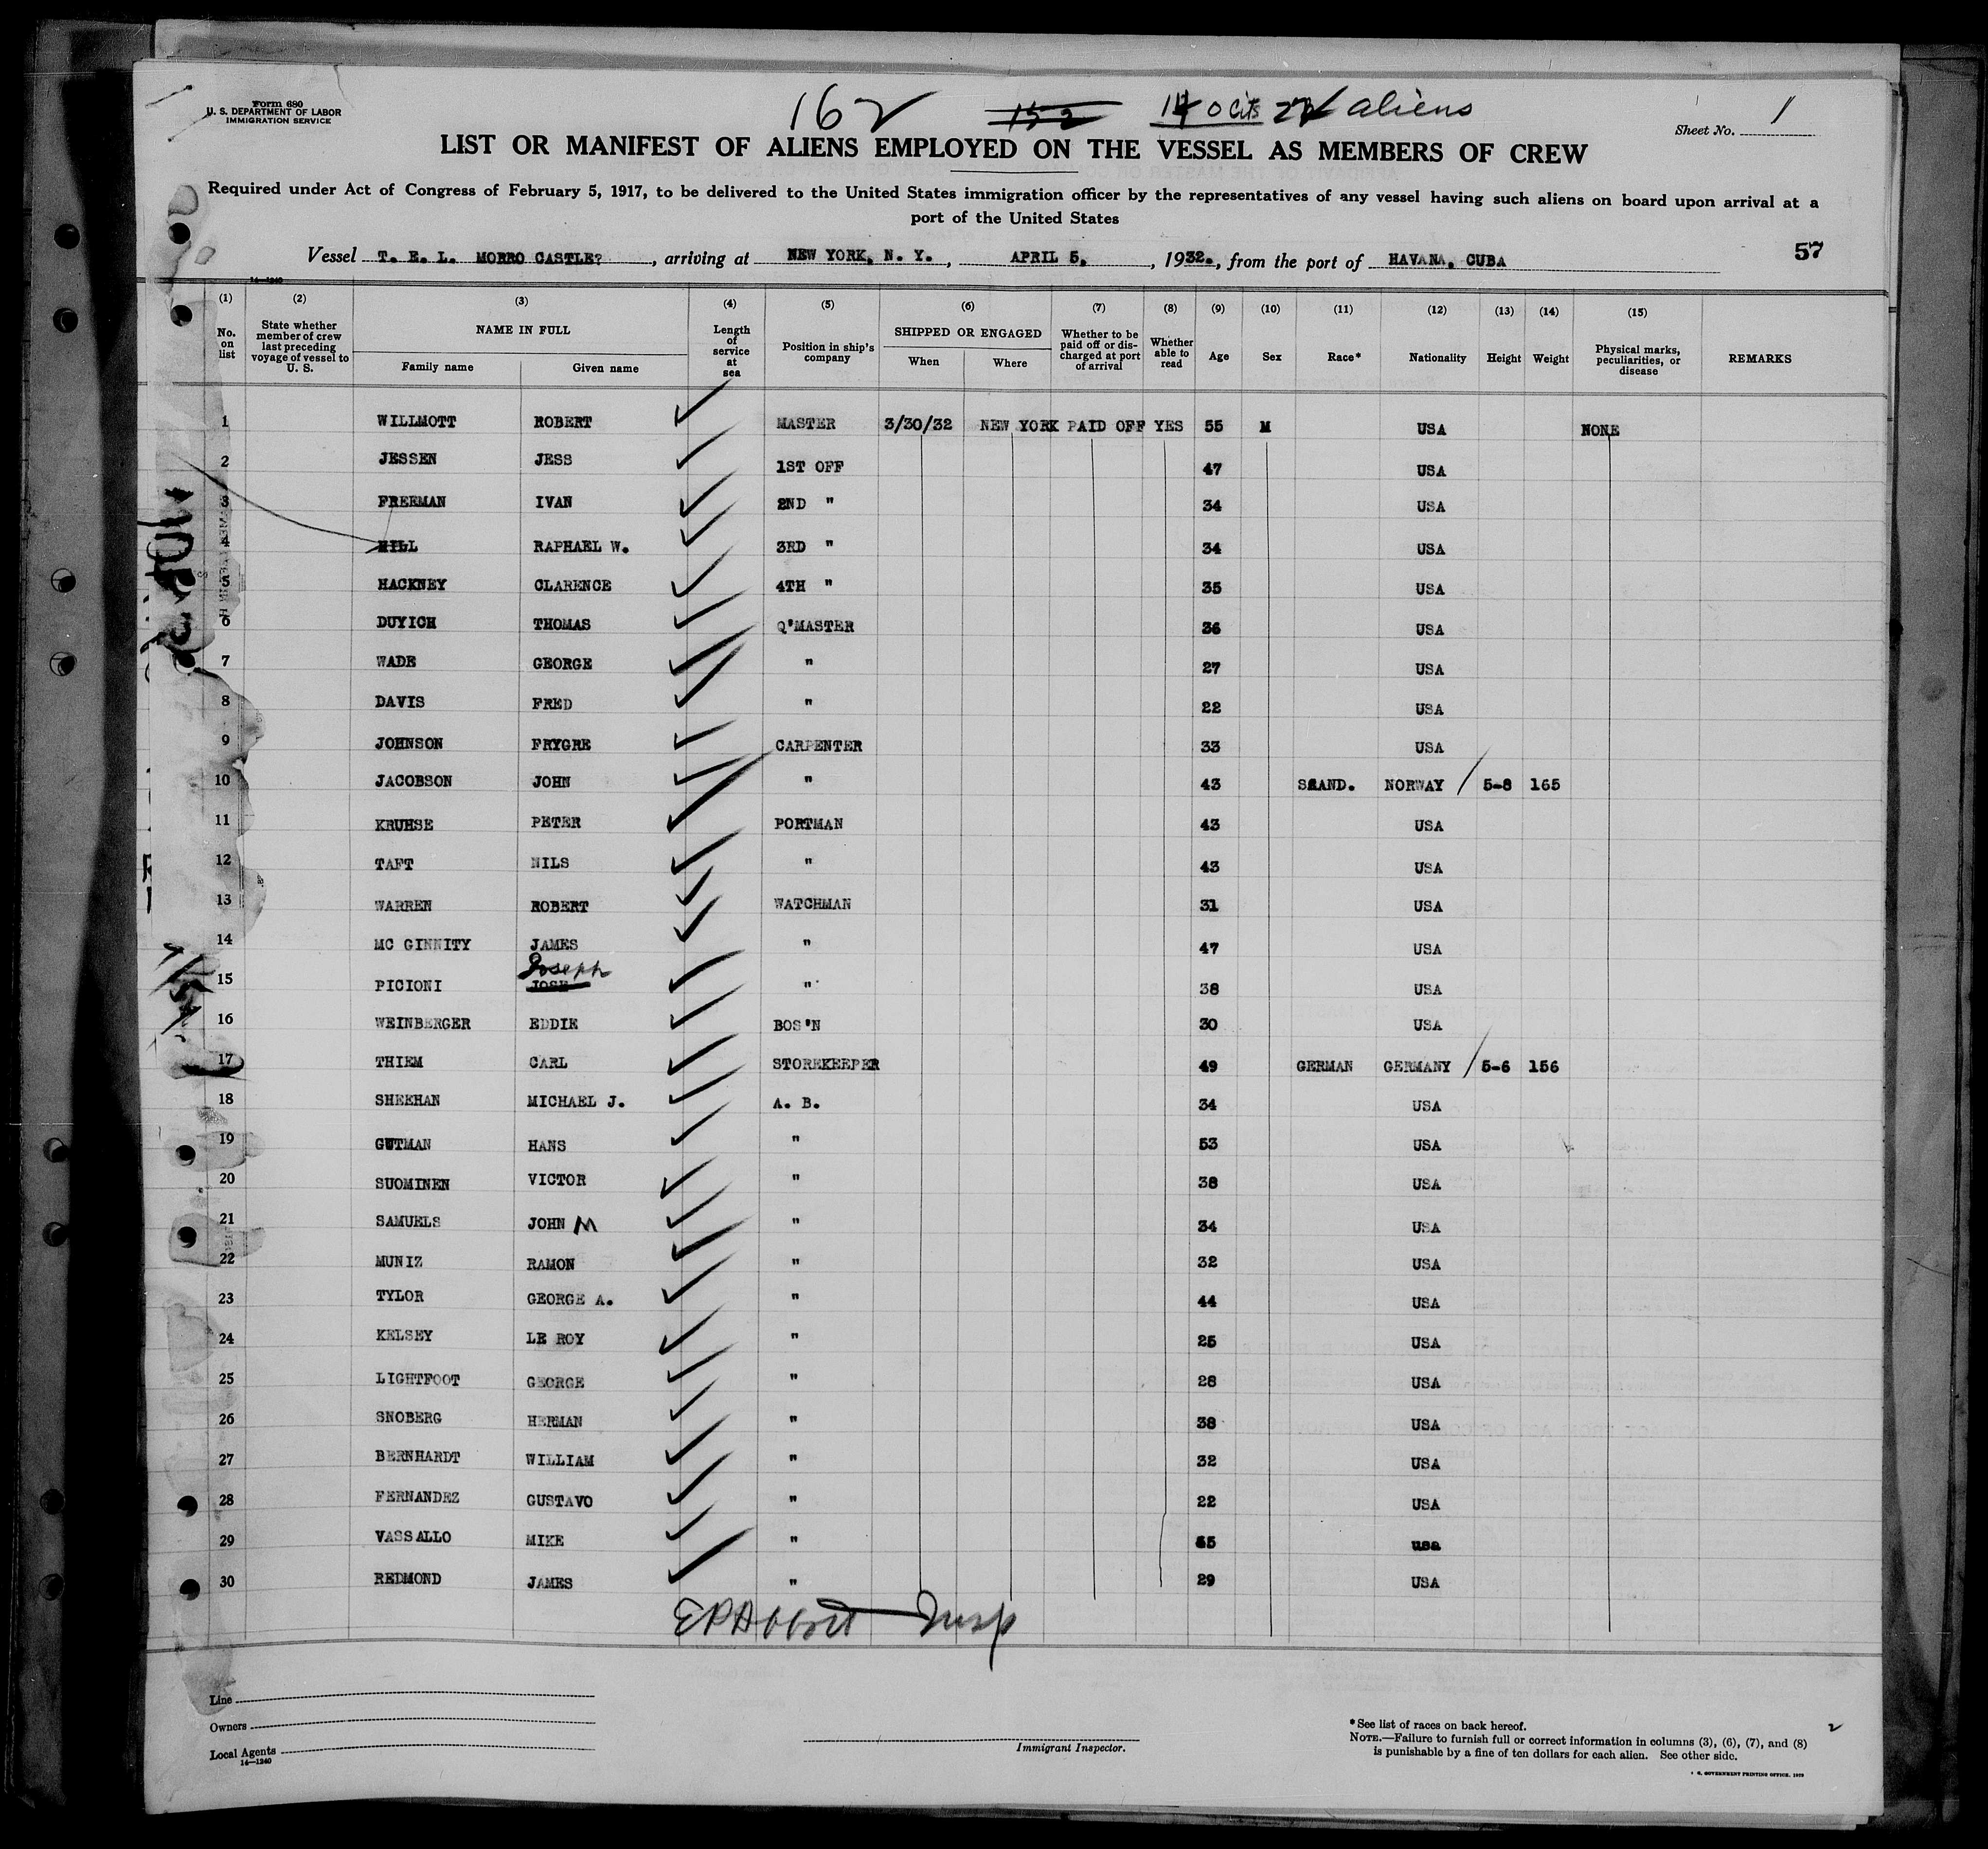 Form 680
U. S. DEPARTMENT OF LABOR
IMMIGRATION SERVICE
162 152 0 cits aliens
Sheet No. 1
LIST OR MANIFEST OF ALIENS EMPLOYED ON THE VESSEL AS MEMBERS OF CREW
Required under Act of Congress of February 5, 1917, to be delivered to the United States immigration officer by the representatives of any vessel having such aliens on board upon arrival at a
port of the United States
57
Vessel T. E. L. MORRO CASTLE?, arriving at NEW YORK, N. Y., APRIL 5, 1932., from the port of HAVANA, CUBA
14—1240
(1) (2) (3) (4) (5) (6) (7) (8) (9) (10) (11) (12) (13) (14) (15)
No. on list State whether member of crew last preceding voyage of vessel to U. S. NAME IN FULL Family name Given name Length of service at sea Position in ship's company SHIPPED OR ENGAGED When Where Whether to be paid off or discharged at port of arrival Whether able to read Age Sex Race* Nationality Height Weight Physical marks, peculiarities, or disease REMARKS
1 WILLMOTT ROBERT MASTER 3/30/32 NEW YORK PAID OFF YES 55 M USA NONE
2 JESSEN JESS 1ST OFF 47 USA
3 FREEMAN IVAN 2ND " 34 USA
4 HILL RAPHAEL W. 3RD " 34 USA
5 HACKNEY CLARENCE 4TH " 35 USA
6 DUYICH THOMAS Q'MASTER 36 USA
7 WADE GEORGE " 27 USA
8 DAVIS FRED " 22 USA
9 JOHNSON FRYGRE CARPENTER 33 USA
10 JACOBSON JOHN " 43 SAAND. NORWAY 5-8 165
11 KRUHSE PETER PORTMAN 43 USA
12 TAFT NILS " 43 USA
13 WARREN ROBERT WATCHMAN 31 USA
14 MC GINNITY JAMES " 47 USA
Joseph
15 PICIONI JOSE " 38 USA
16 WEINBERGER EDDIE BOS'N 30 USA
17 THIEM CARL STOREKEEPER 49 GERMAN GERMANY 5-6 156
18 SHEEHAN MICHAEL J. A. B. 34 USA
19 GUTMAN HANS " 53 USA
20 SUOMINEN VICTOR " 38 USA
21 SAMUELS JOHN M " 34 USA
22 MUNIZ RAMON " 32 USA
23 TYLOR GEORGE A. " 44 USA
24 KELSEY LE ROY " 25 USA
25 LIGHTFOOT GEORGE " 28 USA
26 SNOBERG HERMAN " 38 USA
27 BERNHARDT WILLIAM " 32 USA
28 FERNANDEZ GUSTAVO " 22 USA
29 VASSALLO MIKE " usa
30 REDMOND JAMES " 29 USA
E P Abbott Insp
Line
Owners
Local Agents
14—1240
Immigrant Inspector.
*See list of races on back hereof.
NOTE.—Failure to furnish full or correct information in columns (3), (6), (7), and (8)
is punishable by a fine of ten dollars for each alien. See other side.
2
GOVERNMENT PRINTING OFFICE